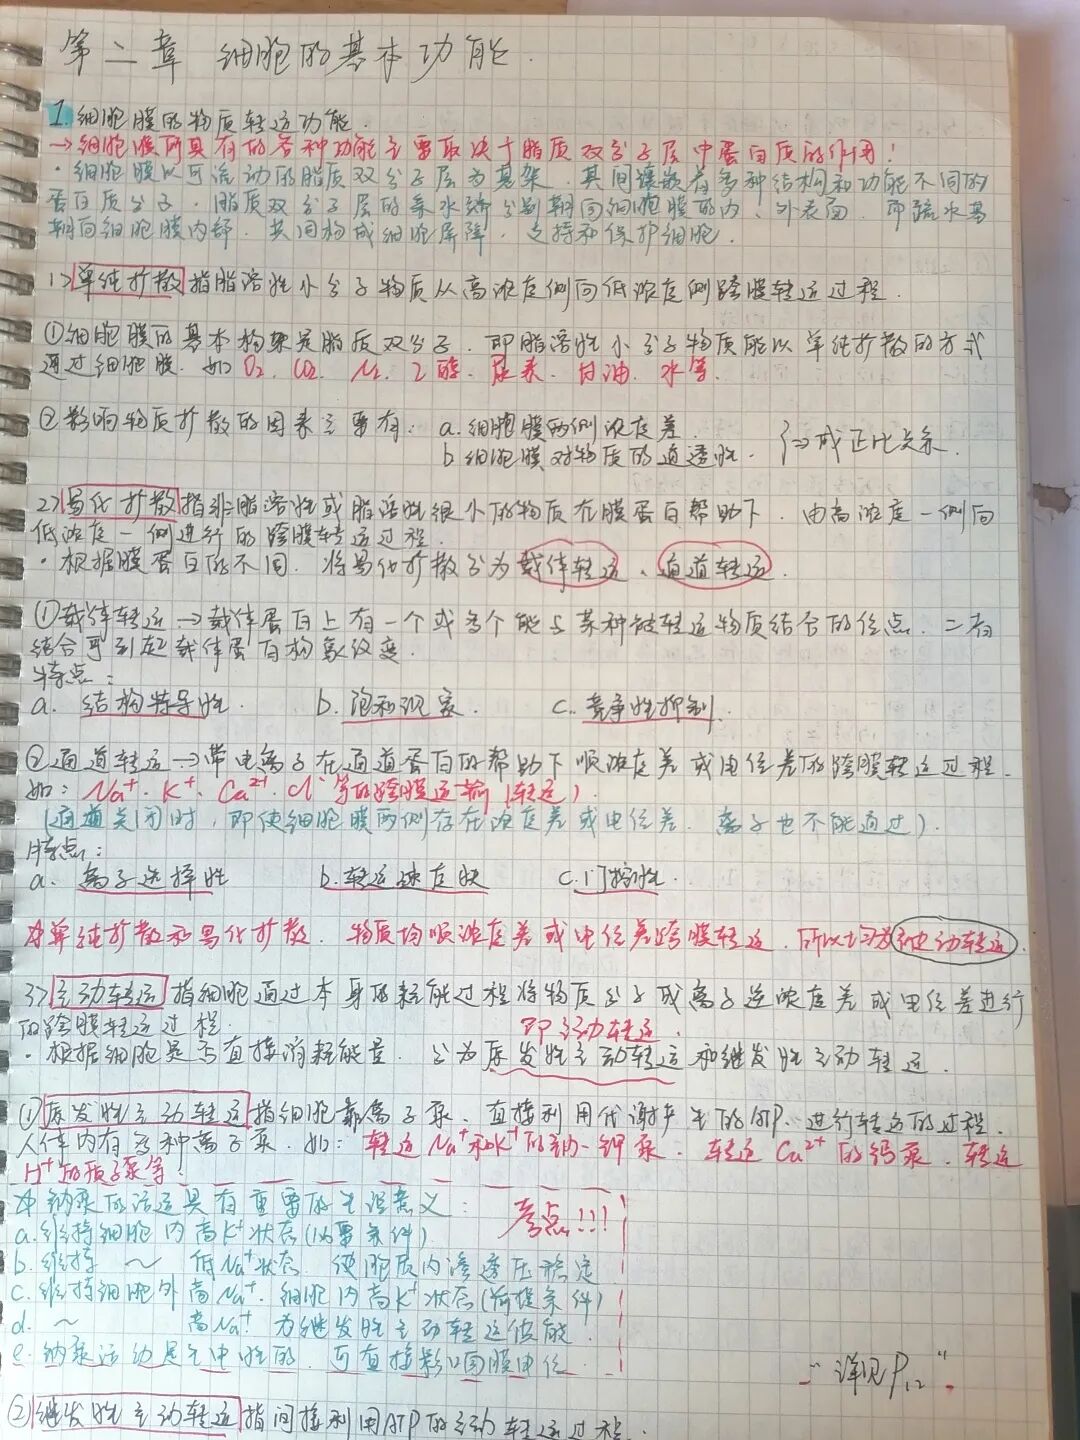 第二章 细胞的基本功能.
1. 细胞膜的物质转运功能.
→细胞膜所具有的各种功能主要取决于脂质双分子层中蛋白质的作用!
·细胞膜以可流动的脂质双分子层为基架, 其间镶嵌着多种结构和功能不同的
蛋白质分子. 脂质双分子层的亲水端分别朝向细胞膜的内、外表面, 即疏水基
朝向细胞膜内部. 共同构成细胞屏障, 支持和保护细胞.
1> 单纯扩散 指脂溶性小分子物质从高浓度侧向低浓度侧跨膜转运过程.
①细胞膜的基本构架是脂质双分子, 即脂溶性小分子物质能以单纯扩散的方式
通过细胞膜. 如 O₂、CO₂、N₂、乙醇、尿素、甘油、水等.
②影响物质扩散的因素主要有: a.细胞膜两侧浓度差.
b.细胞膜对物质的通透性. 成正比关系.
2> 易化扩散 指非脂溶性或脂溶性很小的物质在膜蛋白帮助下, 由高浓度一侧向
低浓度一侧进行的跨膜转运过程.
·根据膜蛋白的不同, 将易化扩散分为载体转运、通道转运.
①载体转运→载体蛋白上有一个或多个能与某种被转运物质结合的位点, 二者
结合可引起载体蛋白构象改变.
特点:
a. 结构特异性. b. 饱和现象. c. 竞争性抑制.
②通道转运→带电离子在通道蛋白的帮助下顺浓度差或电位差的跨膜转运过程.
如: Na⁺、K⁺、Ca²⁺、Cl⁻等的跨膜运输(转运).
(通道关闭时, 即使细胞膜两侧存在浓度差或电位差, 离子也不能通过).
特点:
a. 离子选择性 b.转运速度快 c.门控性.
☆单纯扩散和易化扩散, 物质均顺浓度差或电位差跨膜转运, 所以均为被动转运.
3> 主动转运 指细胞通过本身的耗能过程将物质分子或离子逆浓度差或电位差进行
的跨膜转运过程.
即主动转运.
·根据细胞是否直接消耗能量, 分为原发性主动转运和继发性主动转运.
①原发性主动转运 指细胞靠离子泵, 直接利用代谢产生的ATP, 进行转运的过程.
人体内有多种离子泵 如: 转运Na⁺和K⁺的钠-钾泵, 转运Ca²⁺的钙泵, 转运
H⁺的质子泵等.
☆钠泵的活运具有重要的生理意义: 考点!!!
a.维持细胞内高K⁺状态(必要条件)
b.维持 ~ 低Na⁺状态. 使胞质内渗透压稳定
c.维持细胞外高Na⁺. 细胞内高K⁺状态(前提条件)
d. ~ 高Na⁺. 为继发性主动转运供能.
e.钠泵运动是生电性的, 可直接影响膜电位.
“详见P₁₂”
②继发性主动转运 指间接利用ATP的主动转运过程.